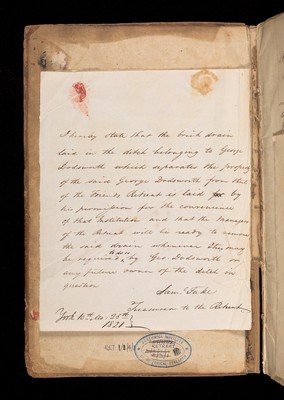 I hereby state that the brick drain
laid in the ditch belonging to George
Dodsworth which separates the property
of the said George Dodsworth from that
of the Friends Retreat is laid by
his permission for the convenience
of that Institution and that the Managers
of the Retreat will be ready to remove
the said drain whenever they may
be required to do so by Geo. Dodsworth or
any future owner of the ditch in
question
Saml. Tuke
Treasurer to the Retreat
York 10th Mo. 25th
1821